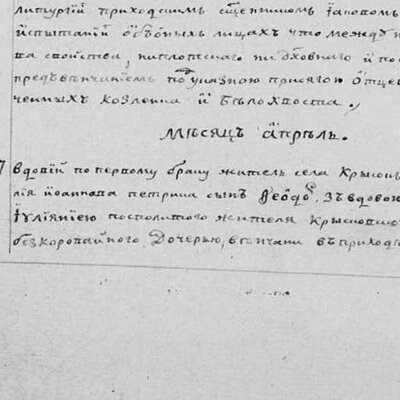 литургїи приходскимъ сщенникомъ Іаковомъ
испытанїи обѣоныхъ лицахъ что между н
ва свойства, ни плотскаго ни дховнаго и пос
предъ вѣнчанїемъ под указною присягою Отцев
ченныхъ козленка и Бѣлохвоста.
Мѣсяцъ Апрѣль.
вдовїй по первому браку житель села Крысон
лїя Іоаннова петрика сынъ Ѳеодоръ. Зъ вдовою
Іулїянїею посполитого жителя Крысовско
безкоровайного Дочерью, вѣнчани въ приход